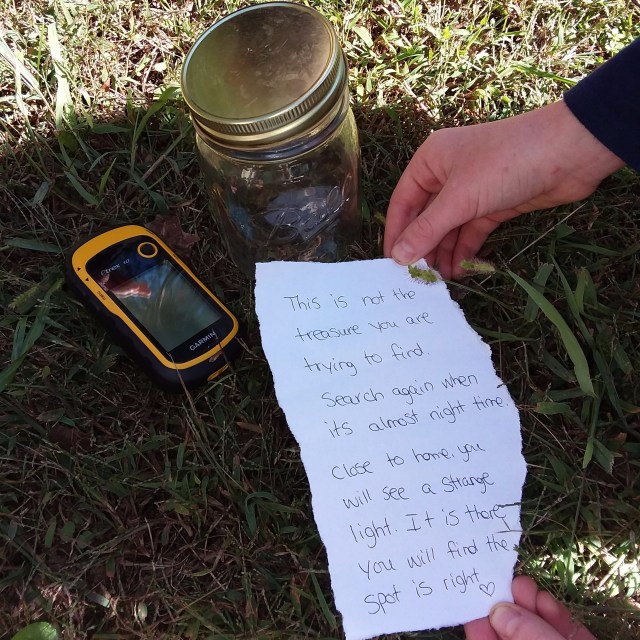 etrex 10
GARMIN
This is not the
treasure you are
trying to find.
Search again when
it's almost night time.
Close to home, you
will see a strange
light. It is there
you will find the
spot is right ♡